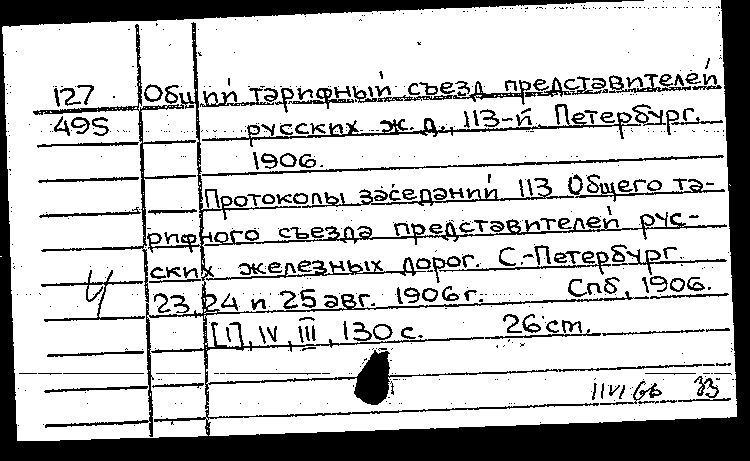 127 Общий тарифный съезд представителей
495 русских ж. д., 113-й. Петербург.
1906.
Протоколы заседаний 113 Общего та-
рифного съезда представителей рус-
ских железных дорог. С.-Петербург.
Ч 23, 24 и 25 авг. 1906 г. Спб, 1906.
[I], IV, III, 130 с. 26 cm.